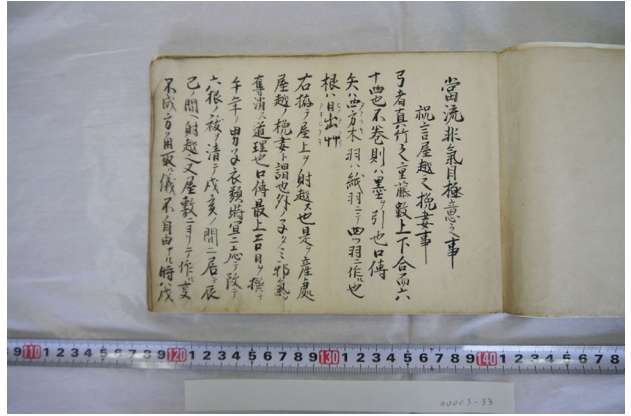 當流非氣目極意之事
祝言屋越之挽妻事
弓者真行之重藤数上下合而六
十四也不巻則ハ墨ヲ引也口傳
矢ハ西方木羽ハ紙羽ニテ四ツ羽ニ作ル也
根ハ目出艸
右拵ヲ屋上ヲ射越ス也是ヲ産處
屋越ノ挽妻ト謂也外ノ邪氣
奪消ス道理也口傳最上吉目ヲ撰テ
午年ノ男子衣類時宜ニ應テ改テ
六根ノ祓ヲ清テ戌亥ノ間ニ居テ辰
巳ノ間ヘ射越ス又屋敷ニヨリテ作ル支
不成方ヲ用取ル儀不自由ナル時ハ戌
9 110 1 2 3 4 5 6 7 8 9 120 1 2 3 4 5 6 7 8 9 130 1 2 3 4 5 6 7 8 9 140 1 2 3 4 5 6 7 8
00003-33